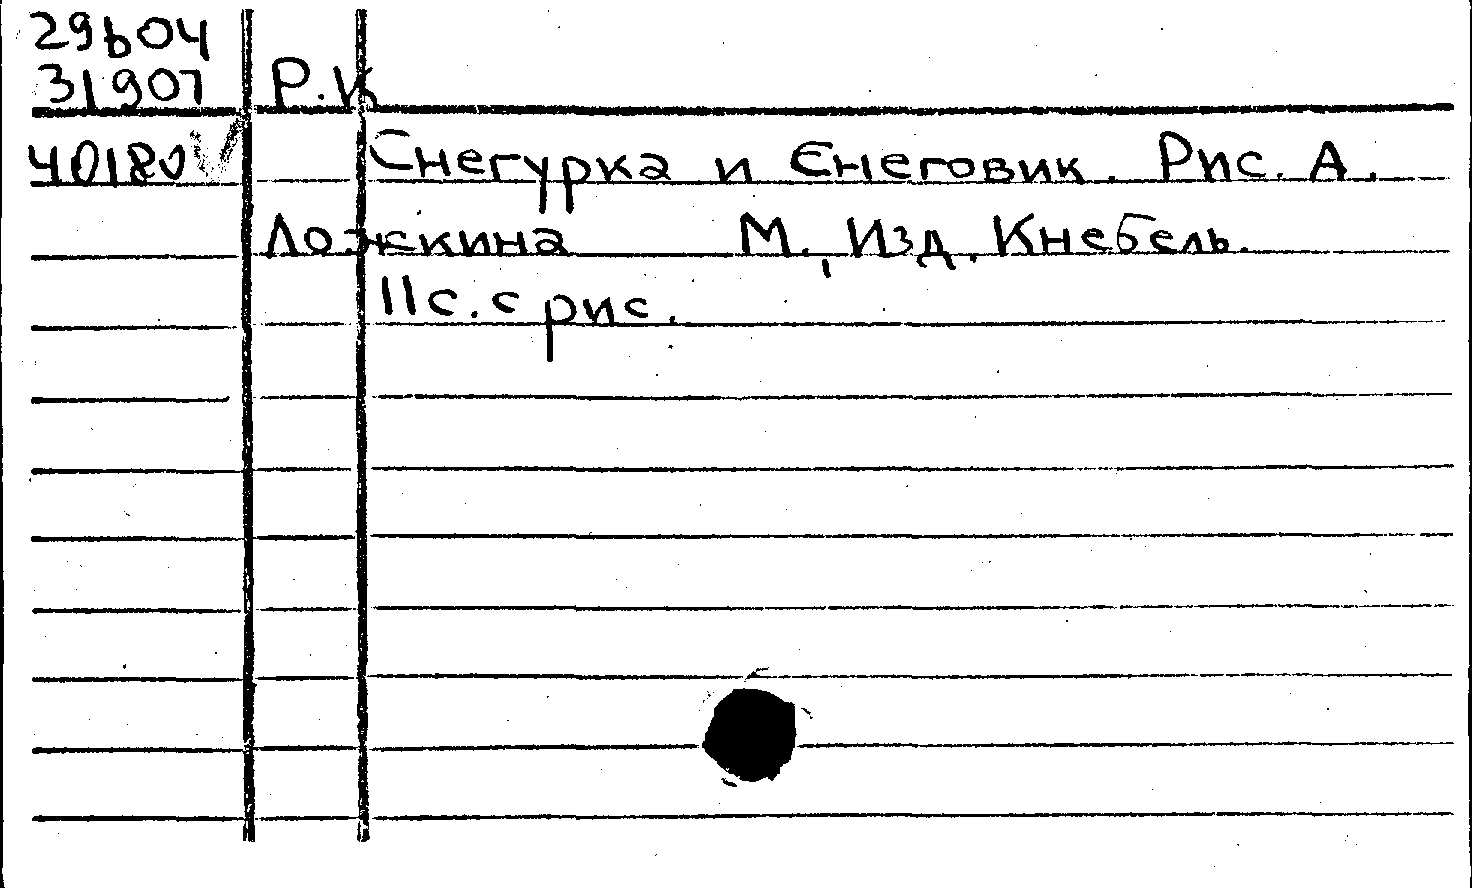 29604
31907 Р.К
40180 V Снегурка и Снеговик. Рис. А.
Ложкина М., Изд. Кнебель.
11с. с рис.